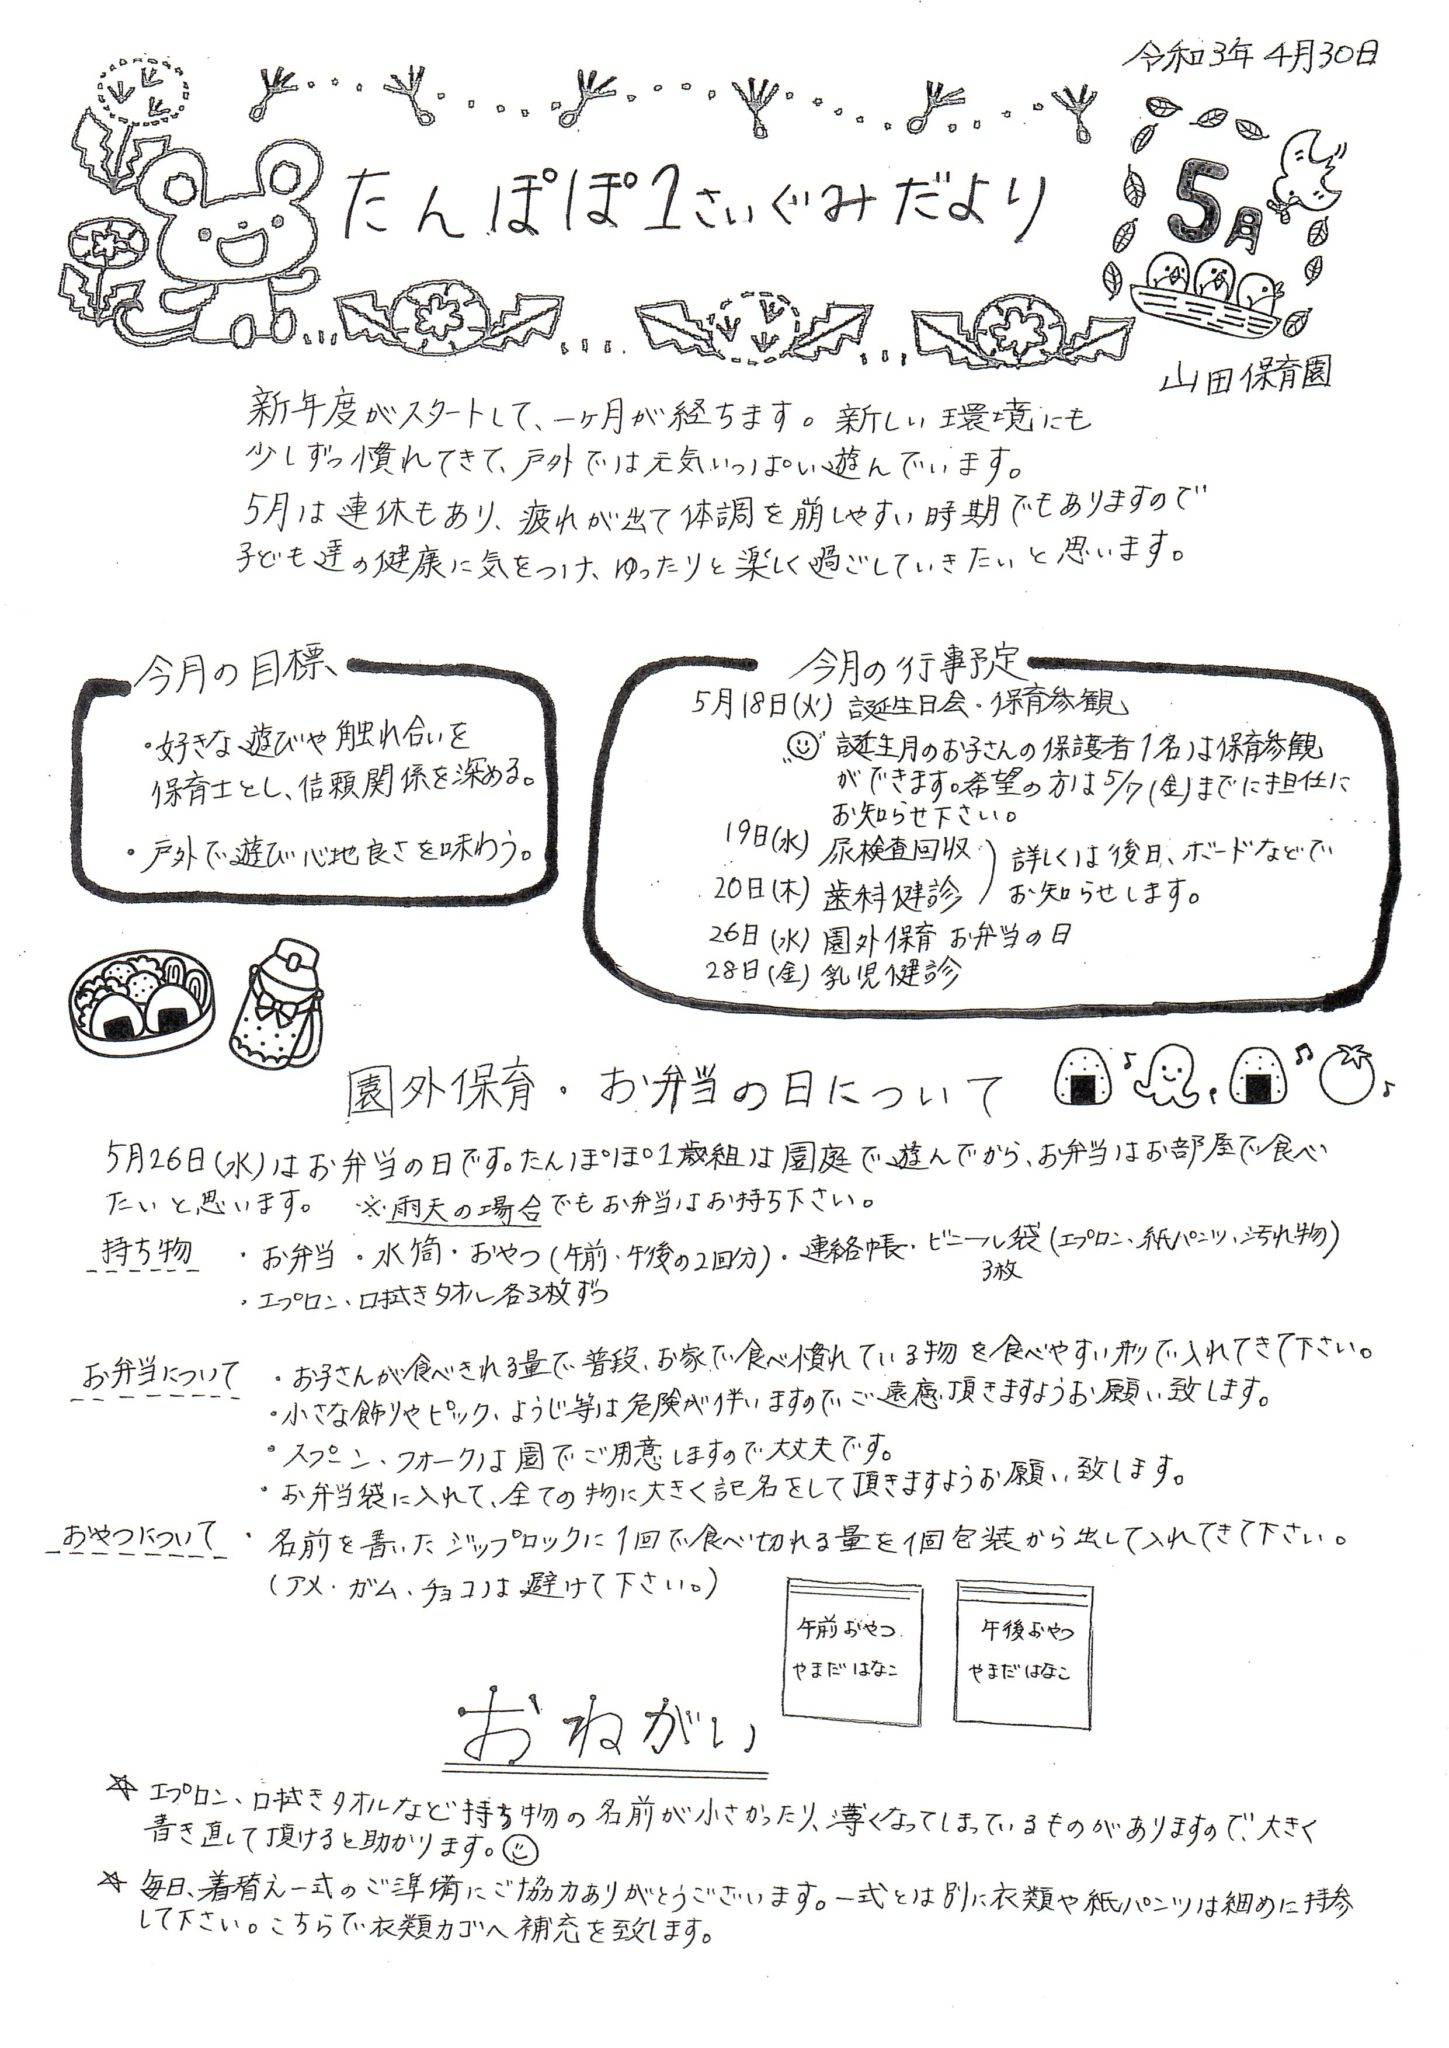 令和3年 4月30日
たんぽぽ1さいぐみだより
5月
山田保育園
新年度がスタートして、一ヶ月が経ちます。新しい環境にも
少しずつ慣れてきて、戸外では元気いっぱい遊んでいます。
5月は連休もあり、疲れが出て体調を崩しやすい時期でもありますので
子ども達の健康に気をつけ、ゆったりと楽しく過ごしていきたいと思います。
今月の目標
・好きな遊びや触れ合いを
保育士とし、信頼関係を深める。
・戸外で遊び心地良さを味わう。
今月の行事予定
5月18日(火) 誕生日会・保育参観
誕生月のお子さんの保護者1名は保育参観
ができます。希望の方は5/7(金)までに担任に
お知らせ下さい。
19日(水) 尿検査回収
20日(木) 歯科健診
詳しくは後日、ボードなどで
お知らせします。
26日(水) 園外保育 お弁当の日
28日(金) 乳児健診
園外保育・お弁当の日について
5月26日(水)はお弁当の日です。たんぽぽ1歳組は園庭で遊んでから、お弁当はお部屋で食べ
たいと思います。 ※雨天の場合でもお弁当はお持ち下さい。
持ち物 ・お弁当・水筒・おやつ(午前・午後の2回分)・連絡帳・ビニール袋(エプロン、紙パンツ、汚れ物)
3枚
・エプロン、口拭きタオル各3枚ずつ
お弁当について ・お子さんが食べきれる量で普段、お家で食べ慣れている物を食べやすい形で入れてきて下さい。
・小さな飾りやピック、ようじ等は危険が伴いますのでご遠慮頂きますようお願い致します。
・スプーン・フォークは園でご用意しますので大丈夫です。
・お弁当袋に入れて、全ての物に大きく記名をして頂きますようお願い致します。
おやつについて ・名前を書いたジップロックに1回で食べ切れる量を個包装から出して入れてきて下さい。
(アメ・ガム・チョコは避けて下さい。)
午前おやつ
やまだはなこ
午後おやつ
やまだはなこ
おねがい
☆ エプロン、口拭きタオルなど持ち物の名前が小さかったり、薄くなってしまっているものがありますので、大きく
書き直して頂けると助かります。
☆ 毎日、着替え一式のご準備にご協力ありがとうございます。一式とは別に衣類や紙パンツは細めに持参
して下さい。こちらで衣類カゴへ補充を致します。